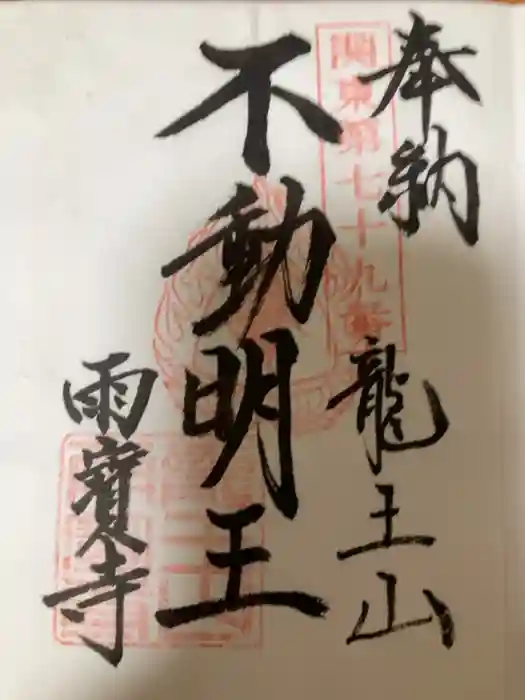 奉納
龍王山
関東第七十九番
不動明王
雨寶寺